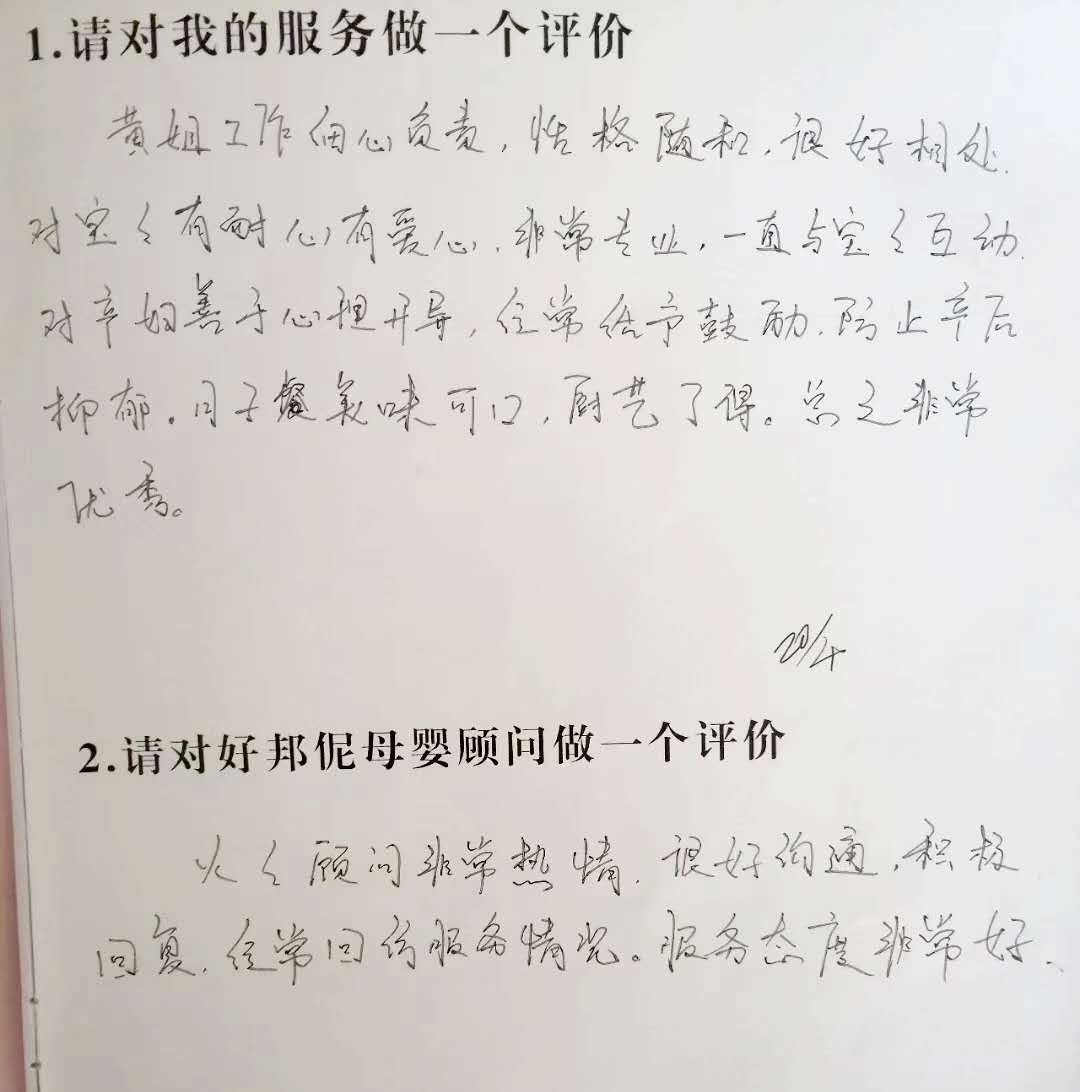 1.请对我的服务做一个评价
黄姐工作细心负责，性格随和，很好相处.
对宝々有耐心有爱心，非常专业，一直与宝々互动.
对产妇善于心理开导，经常给予鼓励，防止产后
抑郁。月子餐美味可口，厨艺了得。总之非常
优秀。
2.请对好邦伲母婴顾问做一个评价
火々顾问非常热情，很好沟通，积极
回复，经常回访服务情况。服务态度非常好.